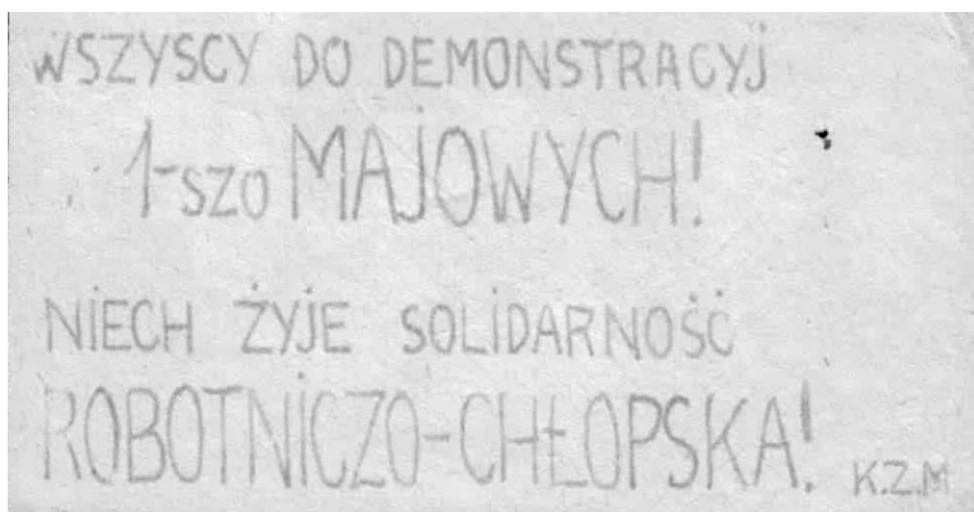 WSZYSCY DO DEMONSTRACYJ
1-SZO MAJOWYCH!
NIECH ŻYJE SOLIDARNOŚĆ
ROBOTNICZO-CHŁOPSKA!
K.Z.M